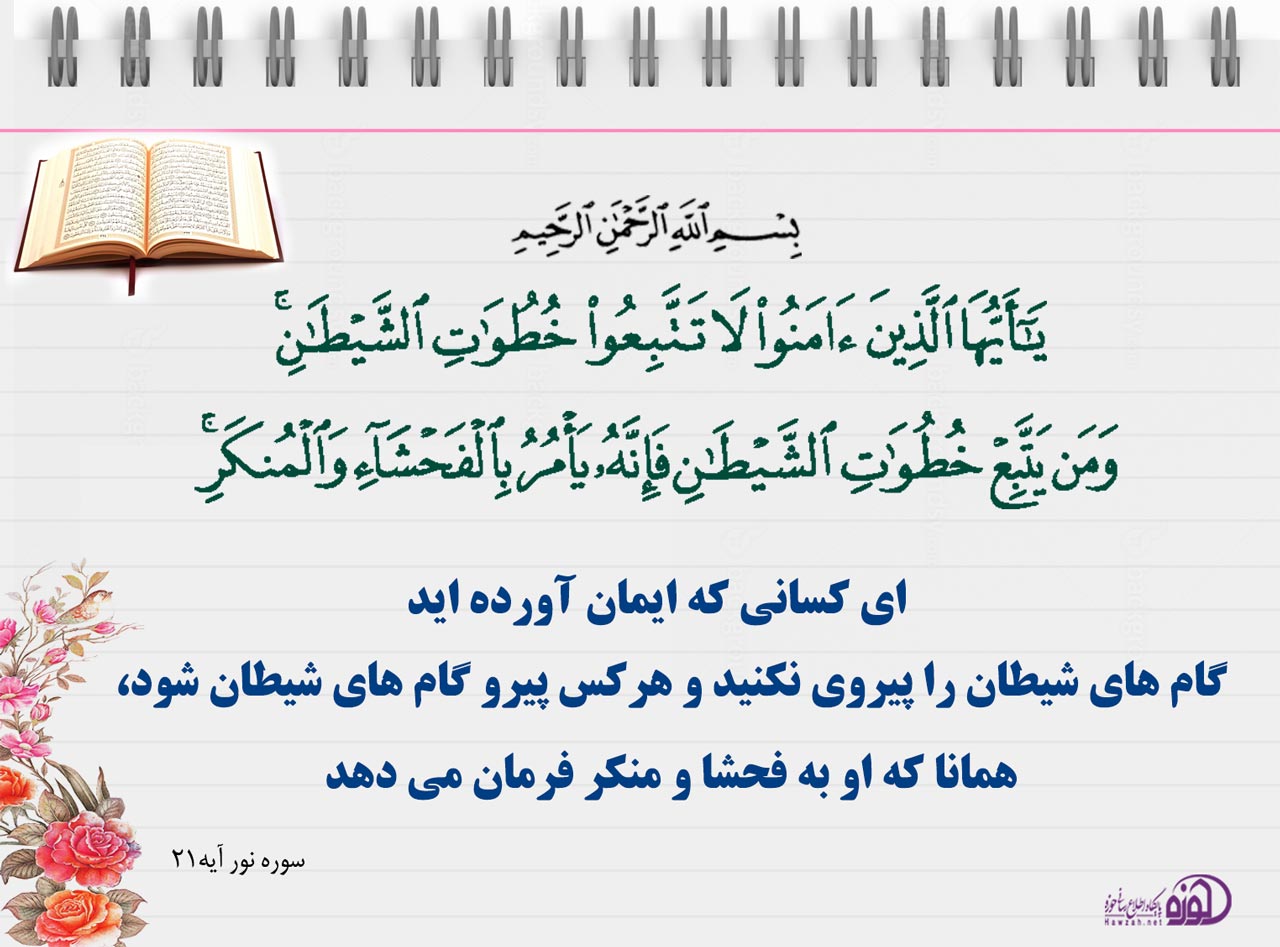 بِسْمِ ٱللَّهِ ٱلرَّحْمَٰنِ ٱلرَّحِيمِ
يَـٰٓأَيُّهَا ٱلَّذِينَ ءَامَنُوا۟ لَا تَتَّبِعُوا۟ خُطُوَٰتِ ٱلشَّيْطَـٰنِ ۚ
وَمَن يَتَّبِعْ خُطُوَٰتِ ٱلشَّيْطَـٰنِ فَإِنَّهُۥ يَأْمُرُ بِٱلْفَحْشَآءِ وَٱلْمُنكَرِ ۚ
ای کسانی که ایمان آورده اید
گام های شیطان را پیروی نکنید و هرکس پیرو گام های شیطان شود،
همانا که او به فحشا و منکر فرمان می دهد
سوره نور آیه۲۱
حوزه
پایگاه اطلاع رسانی حوزه
Hawzah.net